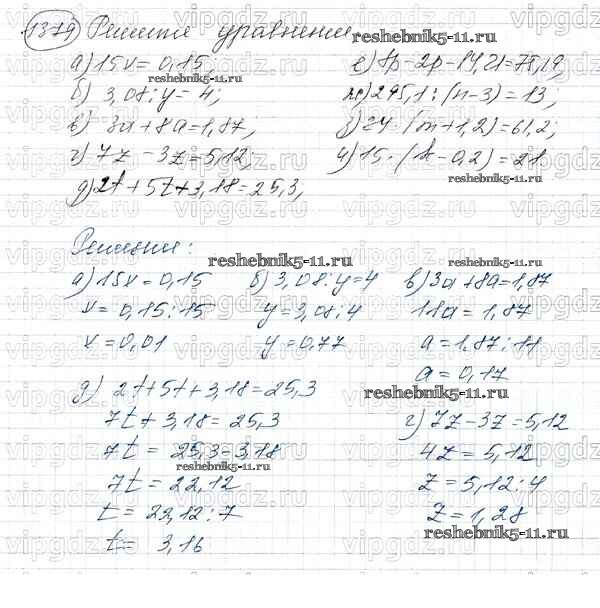 1379 Решите уравнение
а) 15x = 0,15;
б) 3,08 : y = 4;
в) 3a + 8a = 1,87;
г) 7z - 3z = 5,12;
д) 2t + 5t + 3,18 = 25,3;
- 2p - 14,21 = 75,19;
ж) 295,1 : (n - 3) = 13;
з) 34 · (m + 1,2) = 61,2;
и) 15 · (k - 0,2) = 21
Решение:
а) 15x = 0,15
x = 0,15 : 15
x = 0,01
б) 3,08 : y = 4
y = 3,08 : 4
y = 0,77
в) 3a + 8a = 1,87
11a = 1,87
a = 1,87 : 11
a = 0,17
д) 2t + 5t + 3,18 = 25,3
7t + 3,18 = 25,3
7t = 25,3 - 3,18
7t = 22,12
t = 22,12 : 7
t = 3,16
г) 7z - 3z = 5,12
4z = 5,12
z = 5,12 : 4
z = 1,28
reshebnik5-11.ru
vipgdz.ru